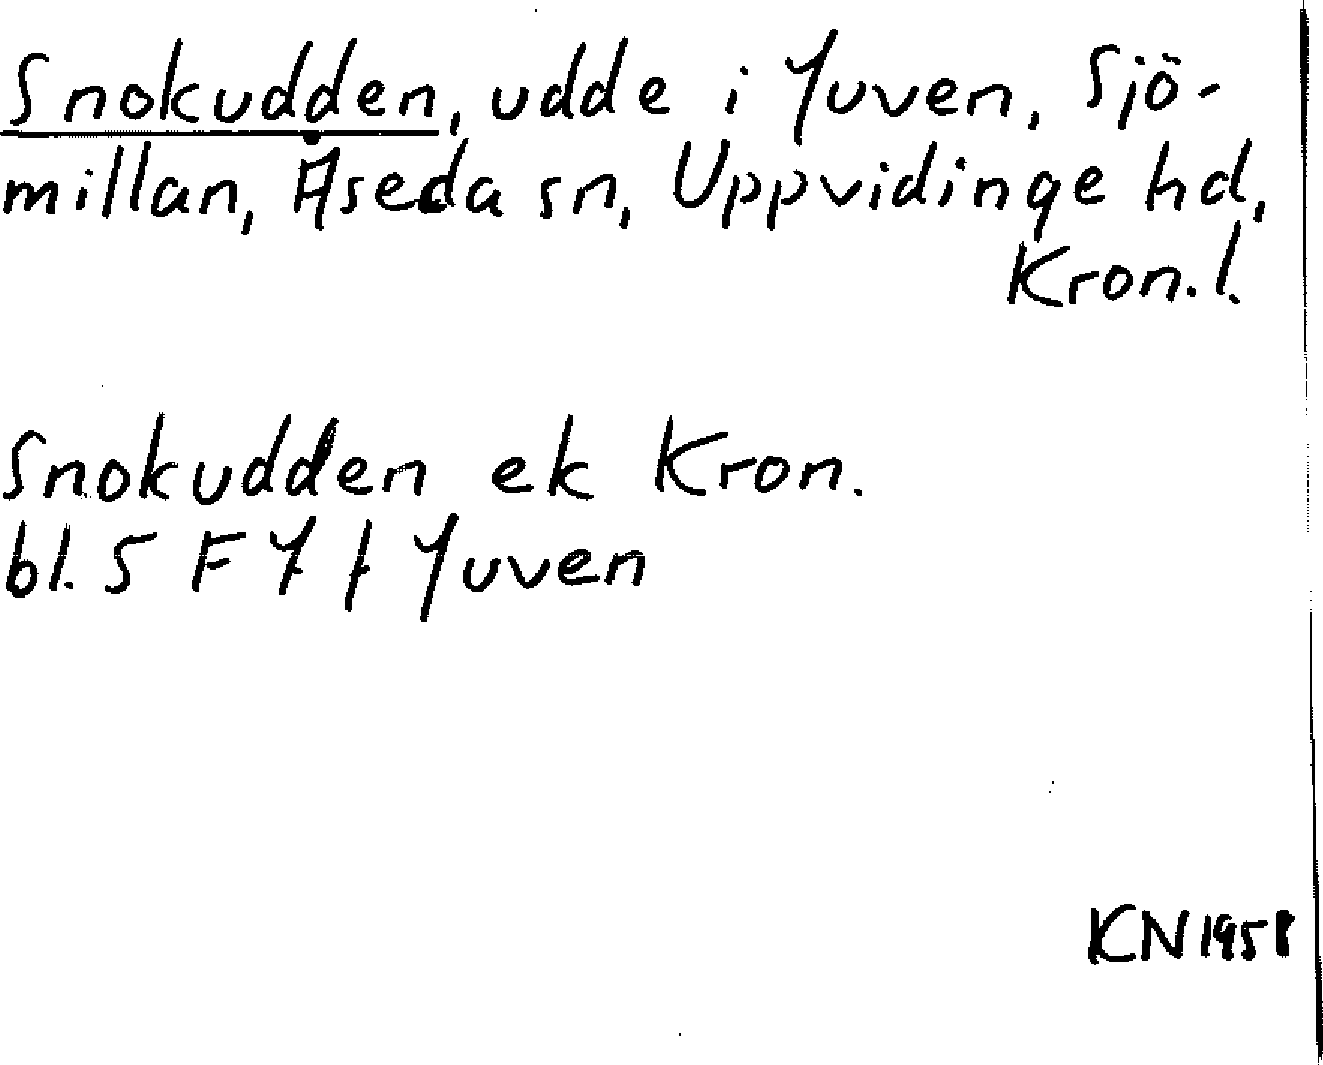 Snokudden, udde i Juven, Sjö-
millan, Åseda sn, Uppvidinge hd,
Kron.l.
Snokudden ek Kron.
bl. 5 F 7 f Juven
KN 1958